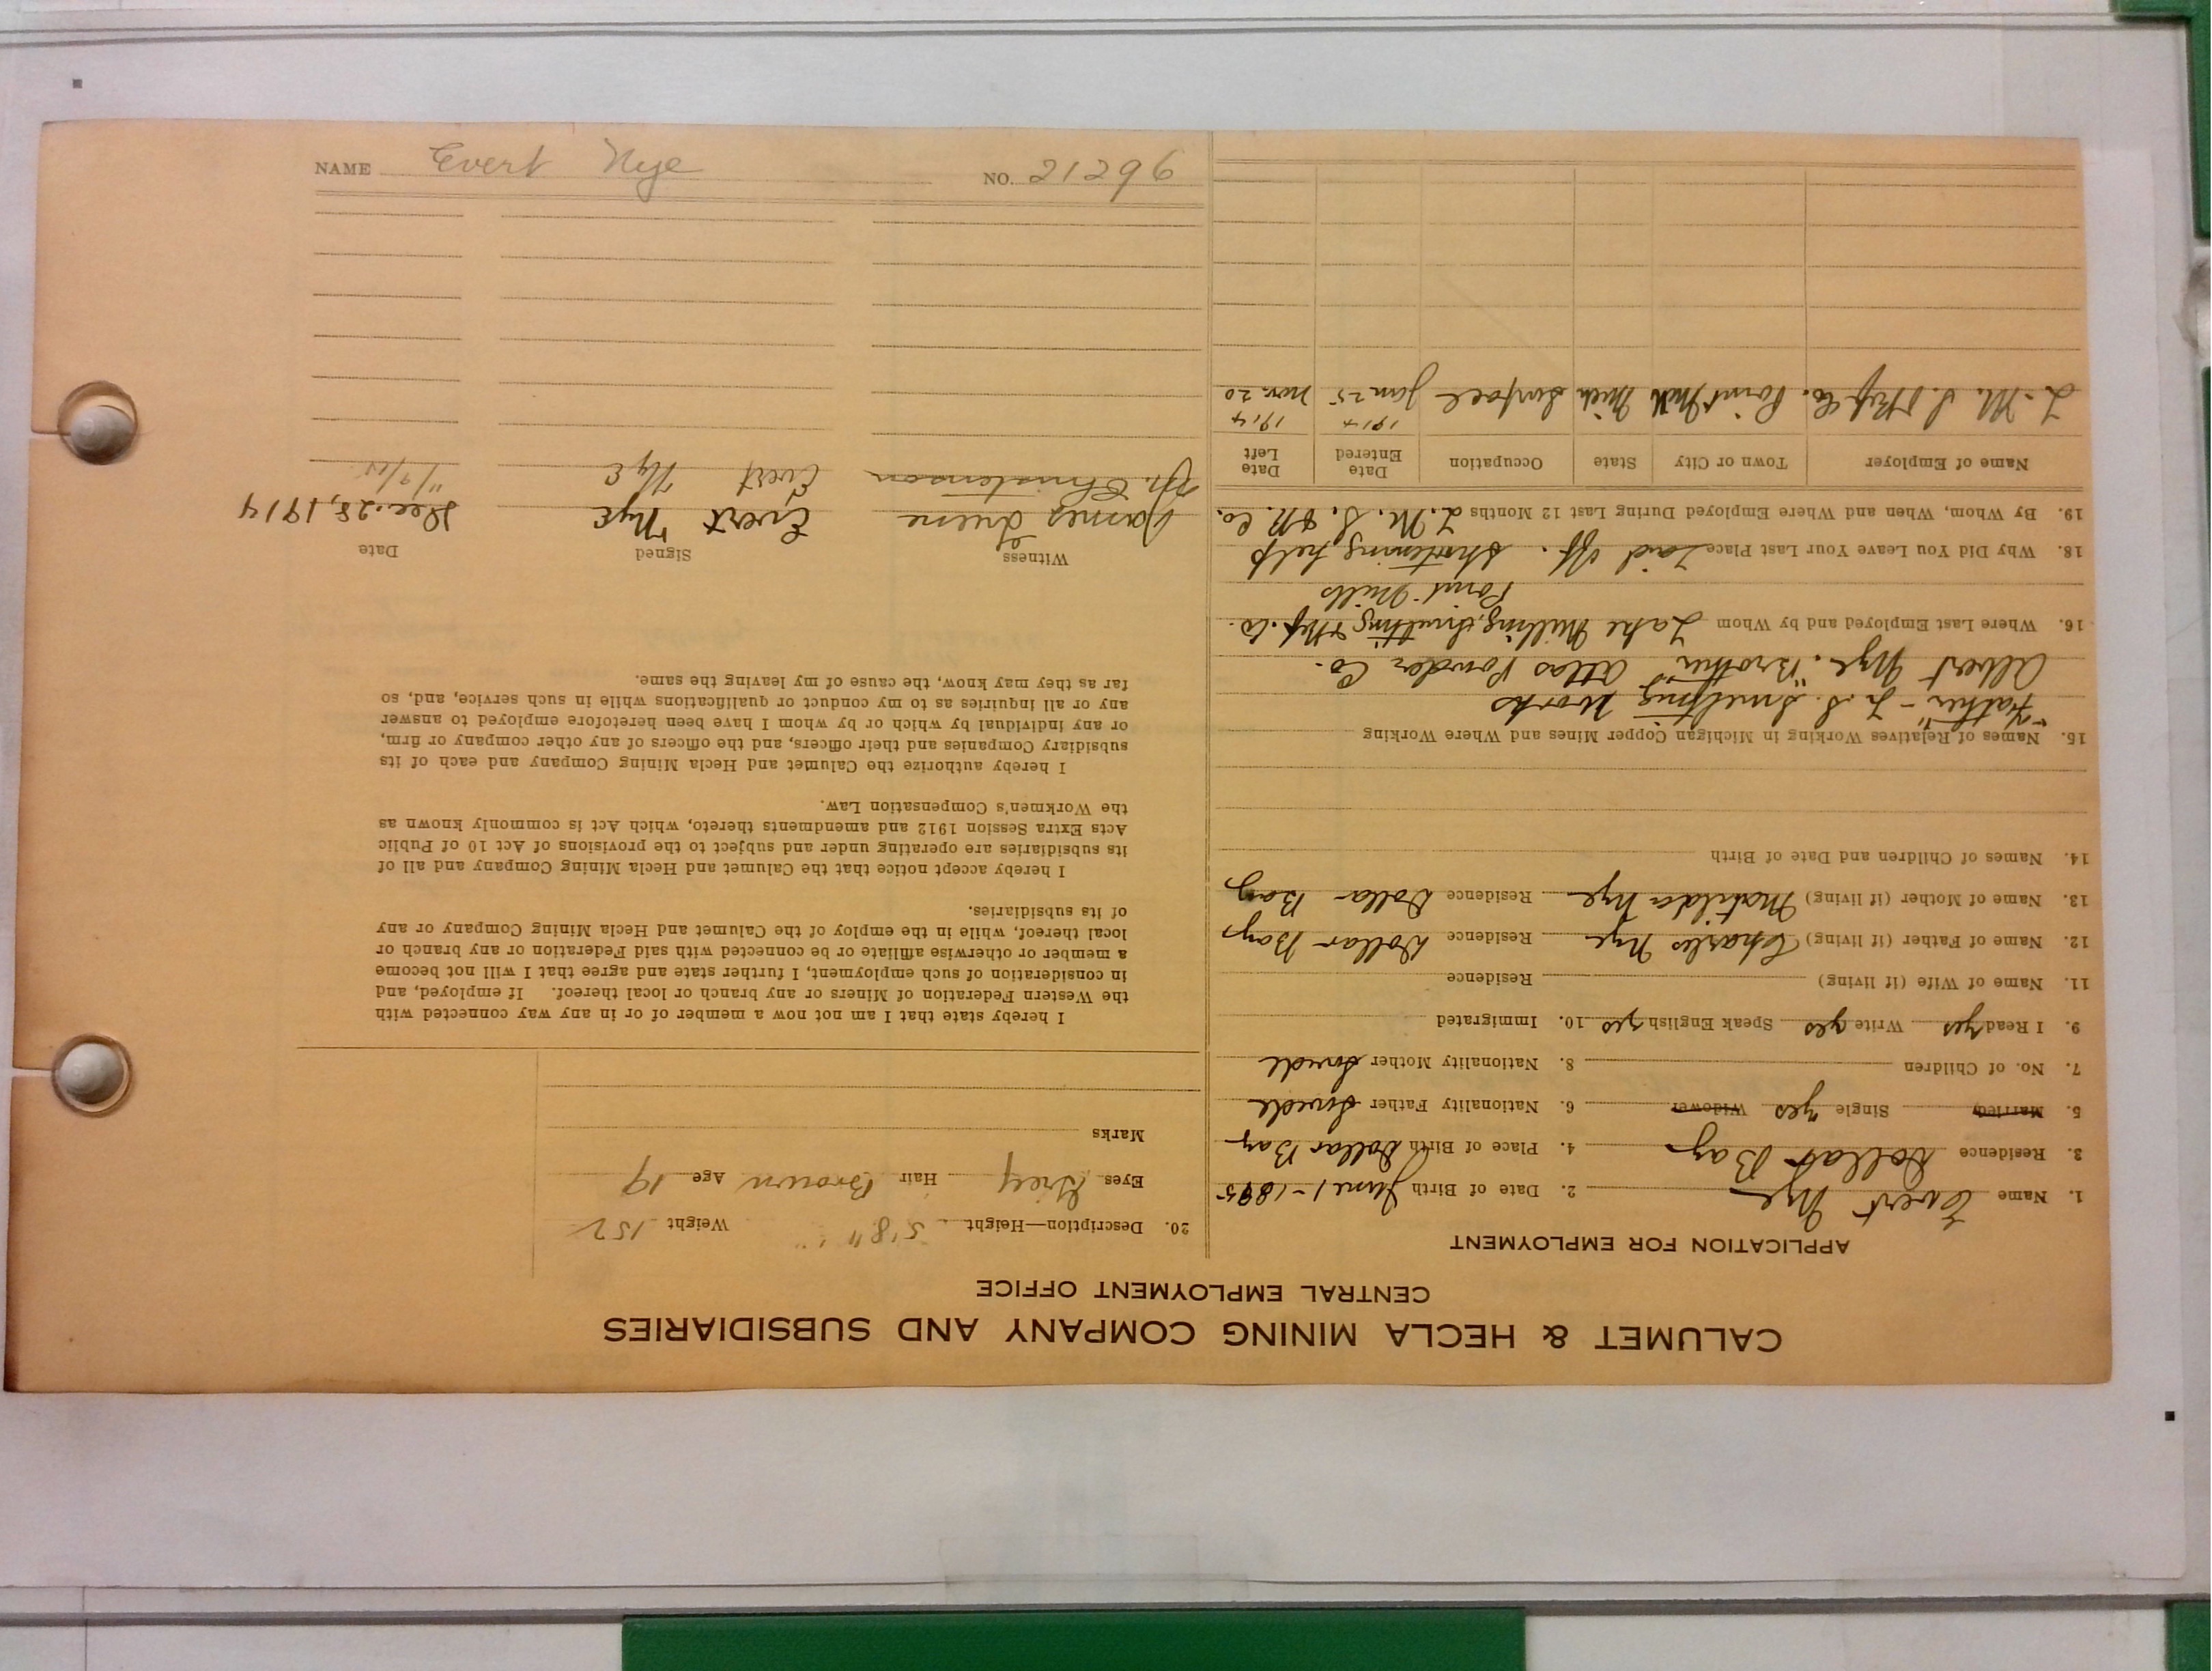 NAME Evert Nye NO. 21296
CALUMET & HECLA MINING COMPANY AND SUBSIDIARIES
CENTRAL EMPLOYMENT OFFICE
APPLICATION FOR EMPLOYMENT
1. Name Evert Nye 2. Date of Birth June 1-1895
3. Residence Dollar Bay 4. Place of Birth Dollar Bay
5. Married Single yes Widower 6. Nationality Father Swede
7. No. of Children 8. Nationality Mother Swede
9. I Read yes Write yes Speak English yes 10. Immigrated
11. Name of Wife (if living) Residence
12. Name of Father (if living) Charles Nye Residence Dollar Bay
13. Name of Mother (if living) Matilda Nye Residence Dollar Bay
14. Names of Children and Date of Birth
15. Names of Relatives Working in Michigan Copper Mines and Where Working
"Father" - L. S. Smelting Works
Albert Nye. "Brother" Atlas Powder Co.
16. Where Last Employed and by Whom Lake Milling, Smelting & Ref. Co.
Point Mills
18. Why Did You Leave Your Last Place Laid off. Shortening help
19. By Whom, When and Where Employed During Last 12 Months L. M. S. & R. Co.
Name of Employer Town or City State Occupation Date Entered Date Left
1914 1914
L. M. S. & Ref. Co. Point Mill Mich Surface Jan 25 Nov. 20
20. Description—Height 5'8" Weight 152
Eyes Grey Hair Brown Age 19
Marks
I hereby state that I am not now a member of or in any way connected with
the Western Federation of Miners or any branch or local thereof. If employed, and
in consideration of such employment, I further state and agree that I will not become
a member or otherwise affiliate or be connected with said Federation or any branch or
local thereof, while in the employ of the Calumet and Hecla Mining Company or any
of its subsidiaries.
I hereby accept notice that the Calumet and Hecla Mining Company and all of
its subsidiaries are operating under and subject to the provisions of Act 10 of Public
Acts Extra Session 1912 and amendments thereto, which Act is commonly known as
the Workmen's Compensation Law.
I hereby authorize the Calumet and Hecla Mining Company and each of its
subsidiary Companies and their officers, and the officers of any other company or firm,
or any individual by which or by whom I have been heretofore employed to answer
any or all inquiries as to my conduct or qualifications while in such service, and, so
far as they may know, the cause of my leaving the same.
Witness Signed Date
James Greene Evert Nye Dec. 28, 1914
Christenson Evert Nye